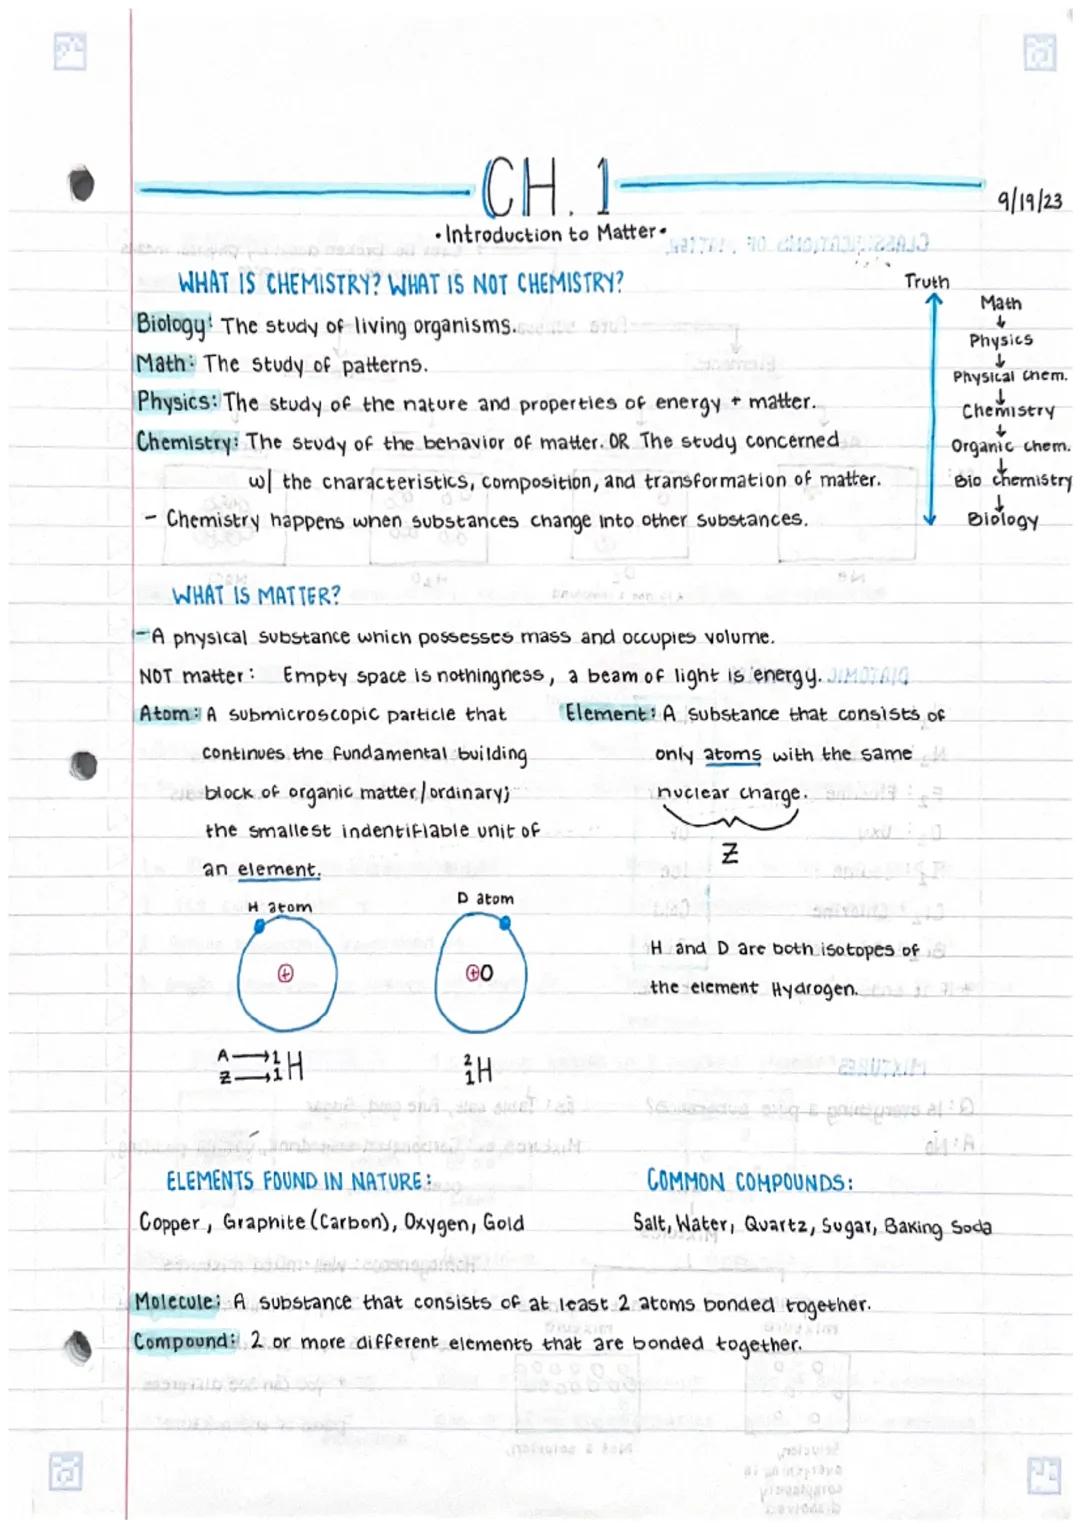 CH. 1
9/19/23
• Introduction to Matter •
WHAT IS CHEMISTRY? WHAT IS NOT CHEMISTRY?
Biology: The study of living organisms.
Math: The study of patterns.
Physics: The study of the nature and properties of energy + matter.
Chemistry: The study of the behavior of matter. OR The study concerned
w/ the characteristics, composition, and transformation of matter.
- Chemistry happens when substances change into other substances.
Truth
Math
↓
Physics
↓
Physical chem.
↓
Chemistry
↓
Organic chem.
↓
Bio chemistry
↓
Biology
WHAT IS MATTER?
- A physical substance which possesses mass and occupies volume.
NOT matter: Empty space is nothingness, a beam of light is energy.
Atom: A submicroscopic particle that
continues the fundamental building
block of organic matter/ordinary;
the smallest indentifiable unit of
an element.
Element: A substance that consists of
only atoms with the same
nuclear charge.
Z
H atom
D atom
+
+
H and D are both isotopes of
the element Hydrogen.
A → 1 H
Z → 1
2 H
1
ELEMENTS FOUND IN NATURE:
Copper, Graphite (Carbon), Oxygen, Gold
COMMON COMPOUNDS:
Salt, Water, Quartz, Sugar, Baking Soda
Molecule: A substance that consists of at least 2 atoms bonded together.
Compound: 2 or more different elements that are bonded together.